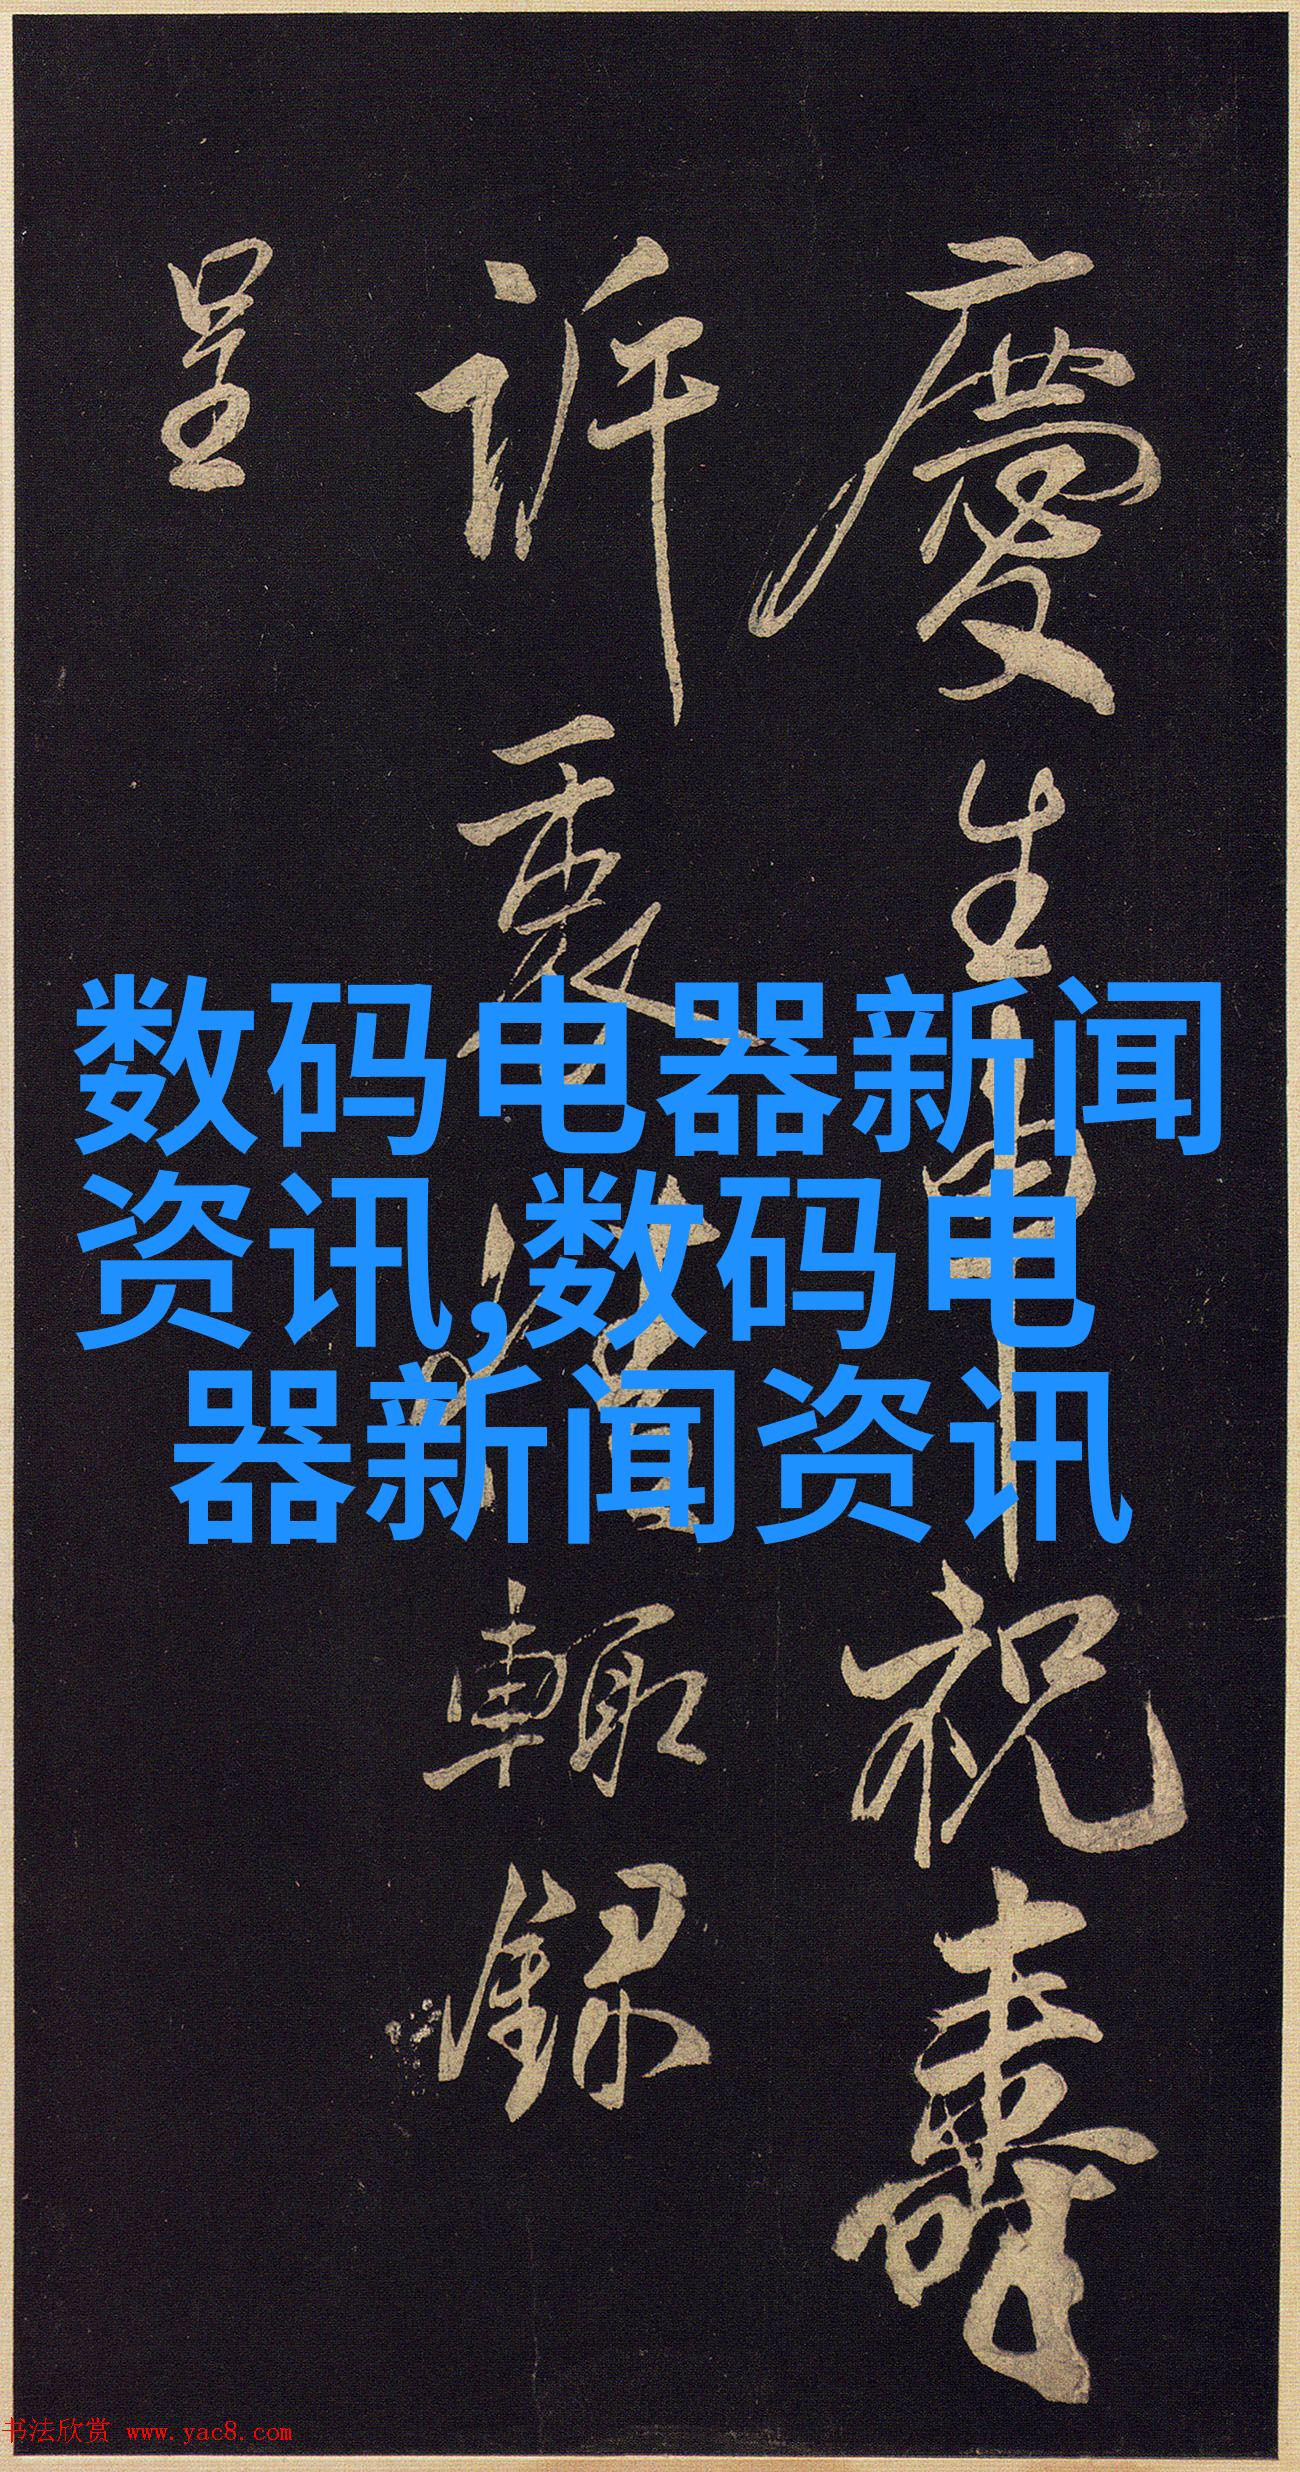 慶生申祝壽
訢裹
輙録
呈
数码电器新闻
资讯,数码电
器新闻资讯
书法欣赏 www.yac8.com